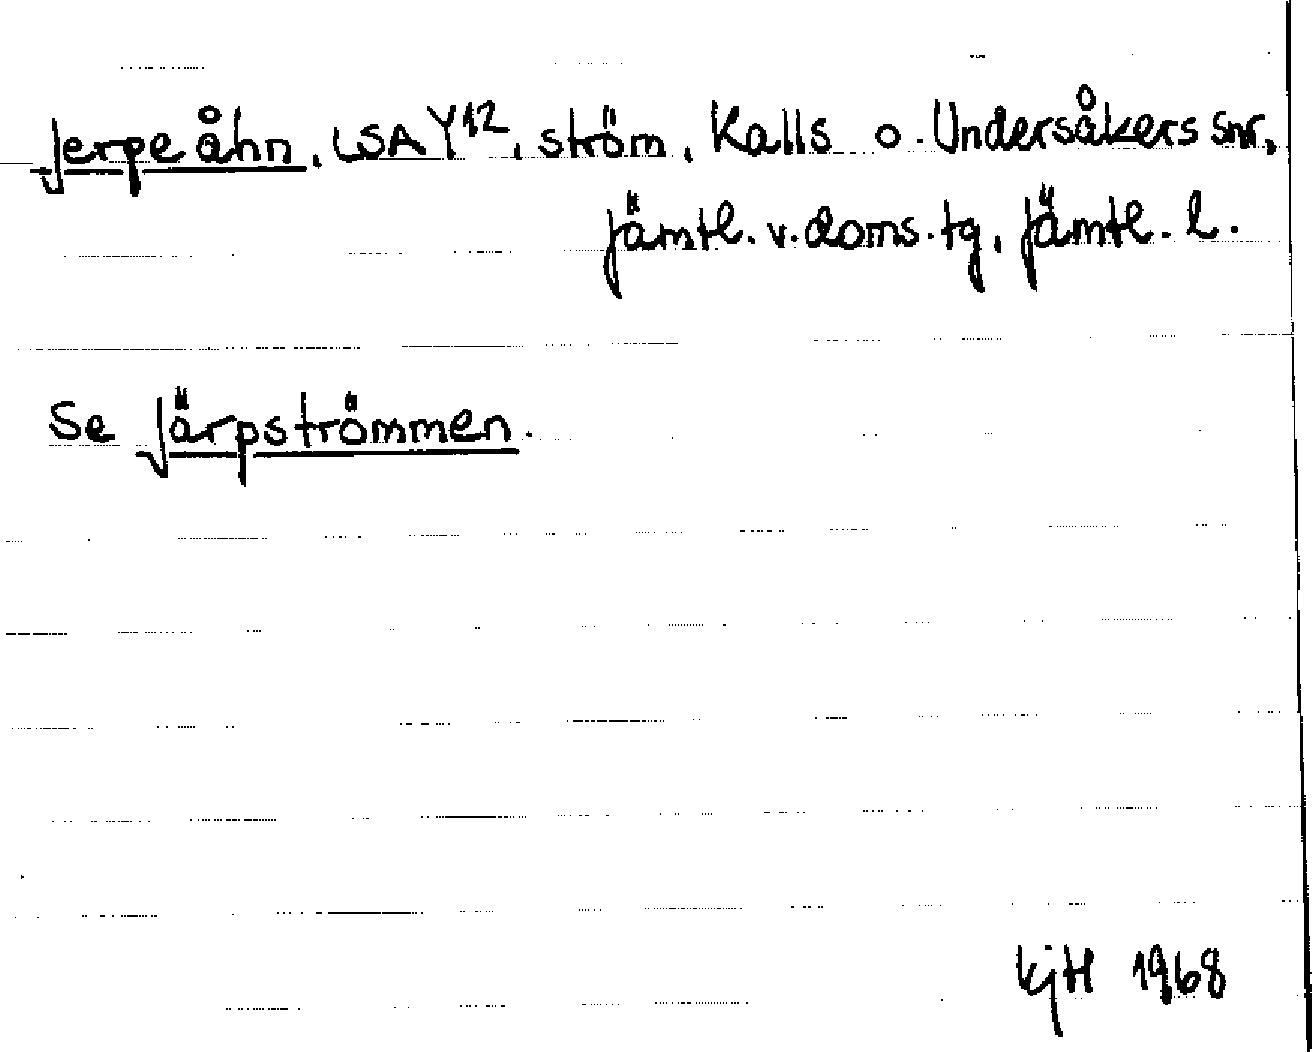 Jerpe åhn, LSA Y12, ström, Kalls o. Undersåkers snr,
Jämtl. v. doms. tg, Jämtl. l.
Se Järpströmmen.
KjH 1968